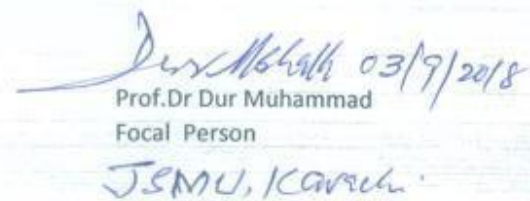 03/9/2018
Prof.Dr Dur Muhammad
Focal Person
JSMU, Karachi.